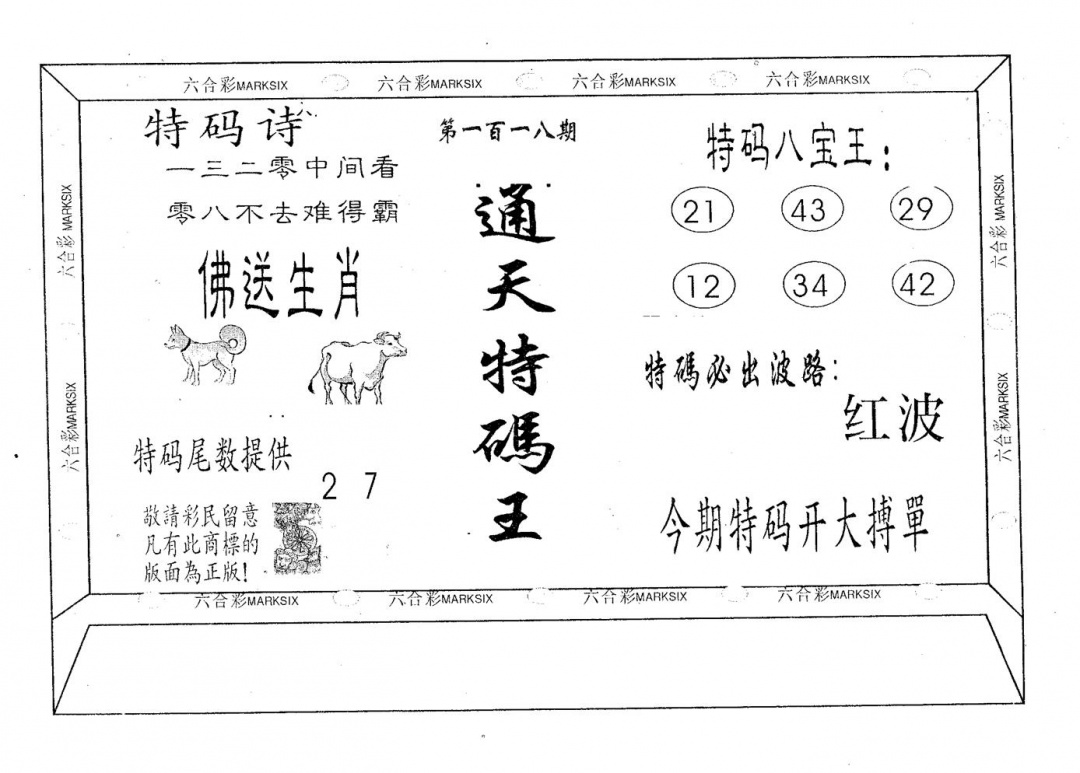 六合彩MARKSIX 六合彩MARKSIX 六合彩MARKSIX 六合彩MARKSIX
六合彩 MARKSIX
六合彩MARKSIX
特码诗
一三二零中间看
零八不去难得霸
佛送生肖
特码尾数提供
2 7
敬請彩民留意
凡有此商標的
版面為正版！
第一百一八期
通天特碼王
特码八宝王：
21 43 29
12 34 42
特碼必出波路：
红波
今期特码开大搏單
六合彩 MARKSIX
六合彩MARKSIX
六合彩MARKSIX 六合彩MARKSIX 六合彩MARKSIX 六合彩MARKSIX